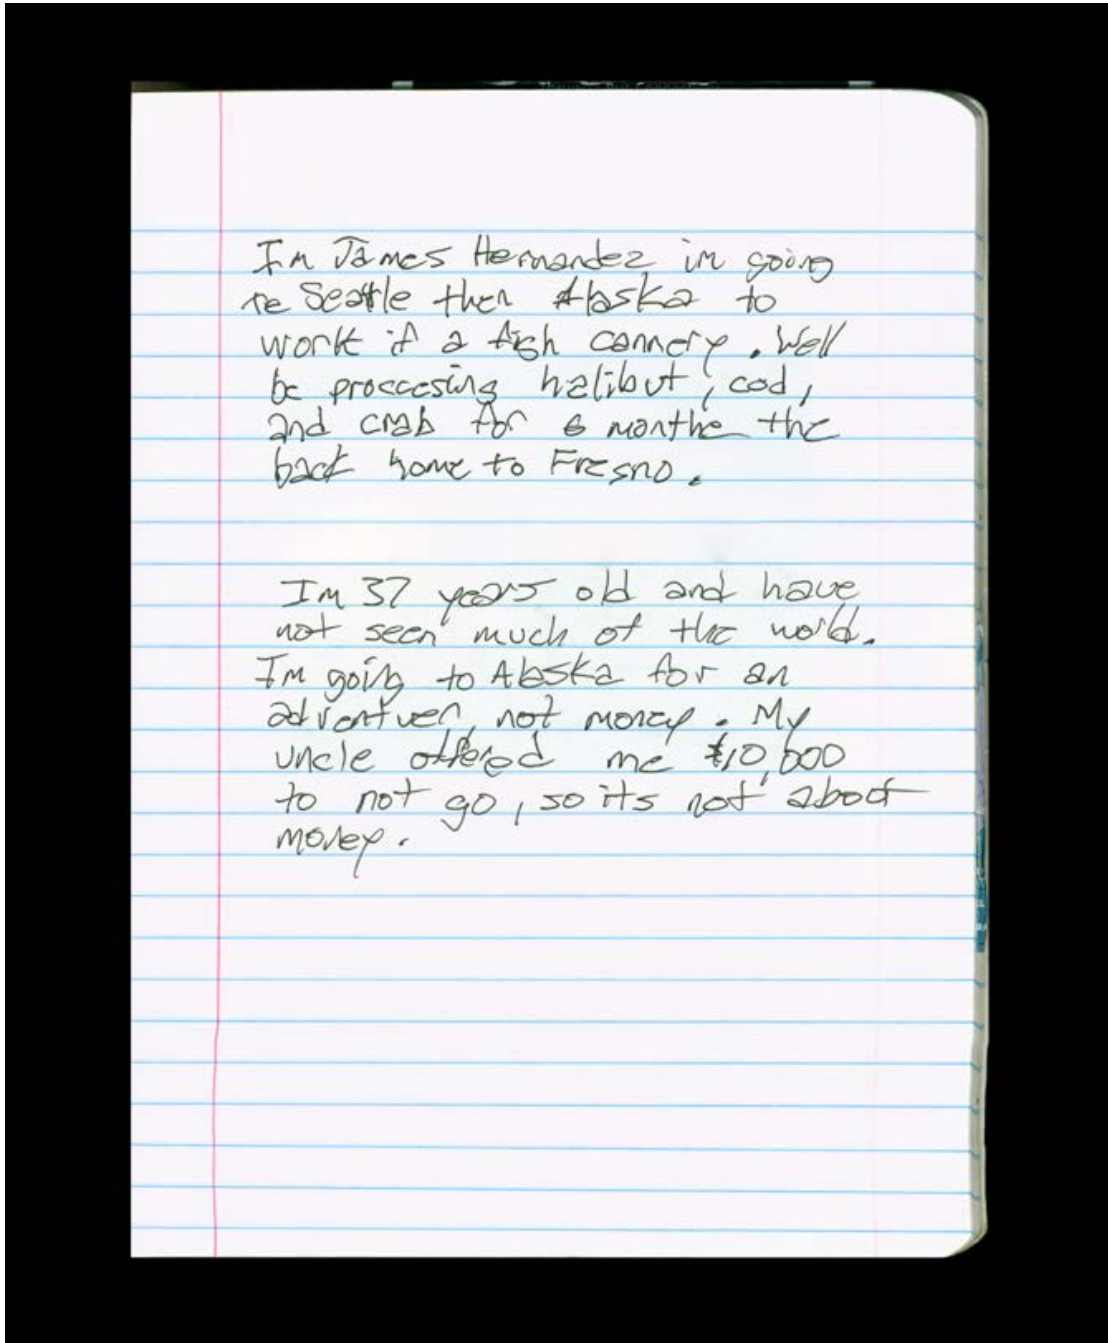 Im James Hernandez im going
te Seattle then Alaska to
work if a fish cannery. Well
be proccesing halibut, cod,
and crab for 6 monthe the
back home to Fresno.
Im 37 years old and have
not seen much of the world.
Im going to Alaska for an
adventuer, not money. My
uncle offered me $10,000
to not go, so its not about
money.